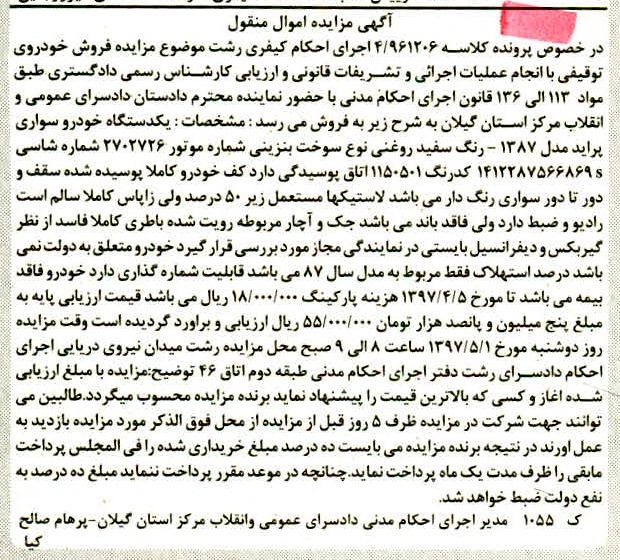 آگهی مزایده اموال منقول
در خصوص پرونده کلاسه ۴/۹۶۱۲۰۶ اجرای احکام کیفری رشت موضوع مزایده فروش خودروی
توقیفی با انجام عملیات اجرائی و تشریفات قانونی و ارزیابی کارشناس رسمی دادگستری طبق
مواد ۱۱۳ الی ۱۳۶ قانون اجرای احکام مدنی با حضور نماینده محترم دادستان دادسرای عمومی و
انقلاب مرکز استان گیلان به شرح زیر به فروش می رسد : مشخصات : یکدستگاه خودرو سواری
پراید مدل ۱۳۸۷ - رنگ سفید روغنی نوع سوخت بنزینی شماره موتور ۲۷۰۲۷۲۶ شماره شاسی
s ۱۴۱۲۲۸۷۵۶۶۸۶۹ کدرنگ ۱۱۵۰۵۰۱ اتاق پوسیدگی دارد کف خودرو کاملا پوسیده شده سقف و
دور تا دور سواری رنگ دار می باشد لاستیکها مستعمل زیر ۵۰ درصد ولی زاپاس کاملا سالم است
رادیو و ضبط دارد ولی فاقد باند می باشد جک و آچار مربوطه رویت شده باطری کاملا فاسد از نظر
گیربکس و دیفرانسیل بایستی در نمایندگی مجاز مورد بررسی قرار گیرد خودرو متعلق به دولت نمی
باشد درصد استهلاک فقط مربوط به مدل سال ۸۷ می باشد قابلیت شماره گذاری دارد خودرو فاقد
بیمه می باشد تا مورخ ۱۳۹۷/۴/۵ هزینه پارکینگ ۱۸/۰۰۰/۰۰۰ ریال می باشد قیمت ارزیابی پایه به
مبلغ پنج میلیون و پانصد هزار تومان ۵۵/۰۰۰/۰۰۰ ریال ارزیابی و براورد گردیده است وقت مزایده
روز دوشنبه مورخ ۱۳۹۷/۵/۱ ساعت ۸ الی ۹ صبح محل مزایده رشت میدان نیروی دریایی اجرای
احکام دادسرای رشت دفتر اجرای احکام مدنی طبقه دوم اتاق ۴۶ توضیح:مزایده با مبلغ ارزیابی
شده اغاز و کسی که بالاترین قیمت را پیشنهاد نماید برنده مزایده محسوب میگردد.طالبین می
توانند جهت شرکت در مزایده ظرف ۵ روز قبل از مزایده از محل فوق الذکر مورد مزایده بازدید به
عمل اورند در نتیجه برنده مزایده می بایست ده درصد مبلغ خریداری شده را فی المجلس پرداخت
مابقی را ظرف مدت یک ماه پرداخت نماید.چنانچه در موعد مقرر پرداخت ننماید مبلغ ده درصد به
نفع دولت ضبط خواهد شد.
ک ۱۰۵۵ مدیر اجرای احکام مدنی دادسرای عمومی وانقلاب مرکز استان گیلان-پرهام صالح
کیا